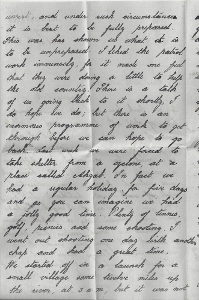 unrest, and under such circumstances
it is best to be fully prepared.
This war has shown us what it is
to be unprepared. I liked the patrol
work immensely, for it made one feel
that they were doing a little to help
the old country. There is a talk
of us going back to it shortly, I
do hope we do; but there is an
enormous programme of work to get
through before we can hope to go
back. Last week we were forced to
take shelter from a cyclone at a
place called In fact we
had a regular holiday for five days
and as you can imagine we had
a jolly good time. Plenty of tennis,
golf, picnics and some shooting. I
went out shooting one day with another
chap and had a great time.
We started off in a launch for a
small village some twelve miles up
the river, at 3 a.m. but it was not